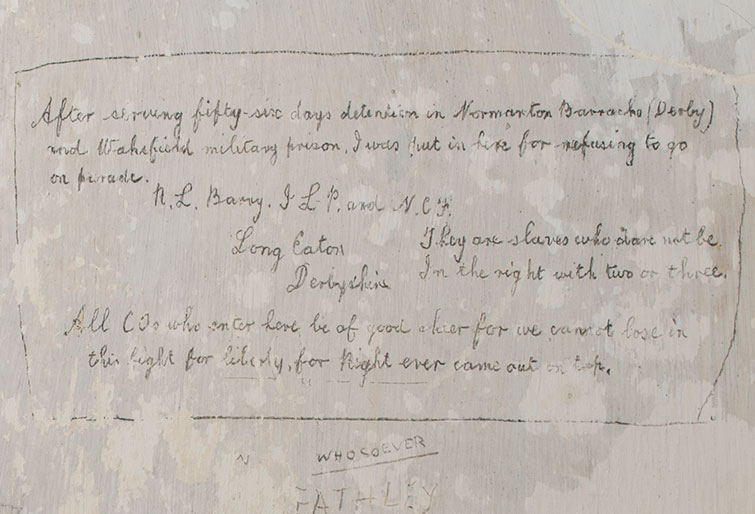 After serving fifty-six days detention in Normanton Barracks (Derby)
and Wakefield military prison, I was put in here for refusing to go
on parade.
N. L. Barry. I L P. and N. C F.
Long Eaton
Derbyshire
They are slaves who dare not be
In the right with two or three.
All COs who enter here be of good cheer for we cannot lose in
this fight for liberty, for Right ever came out on top.
WHOSOEVER